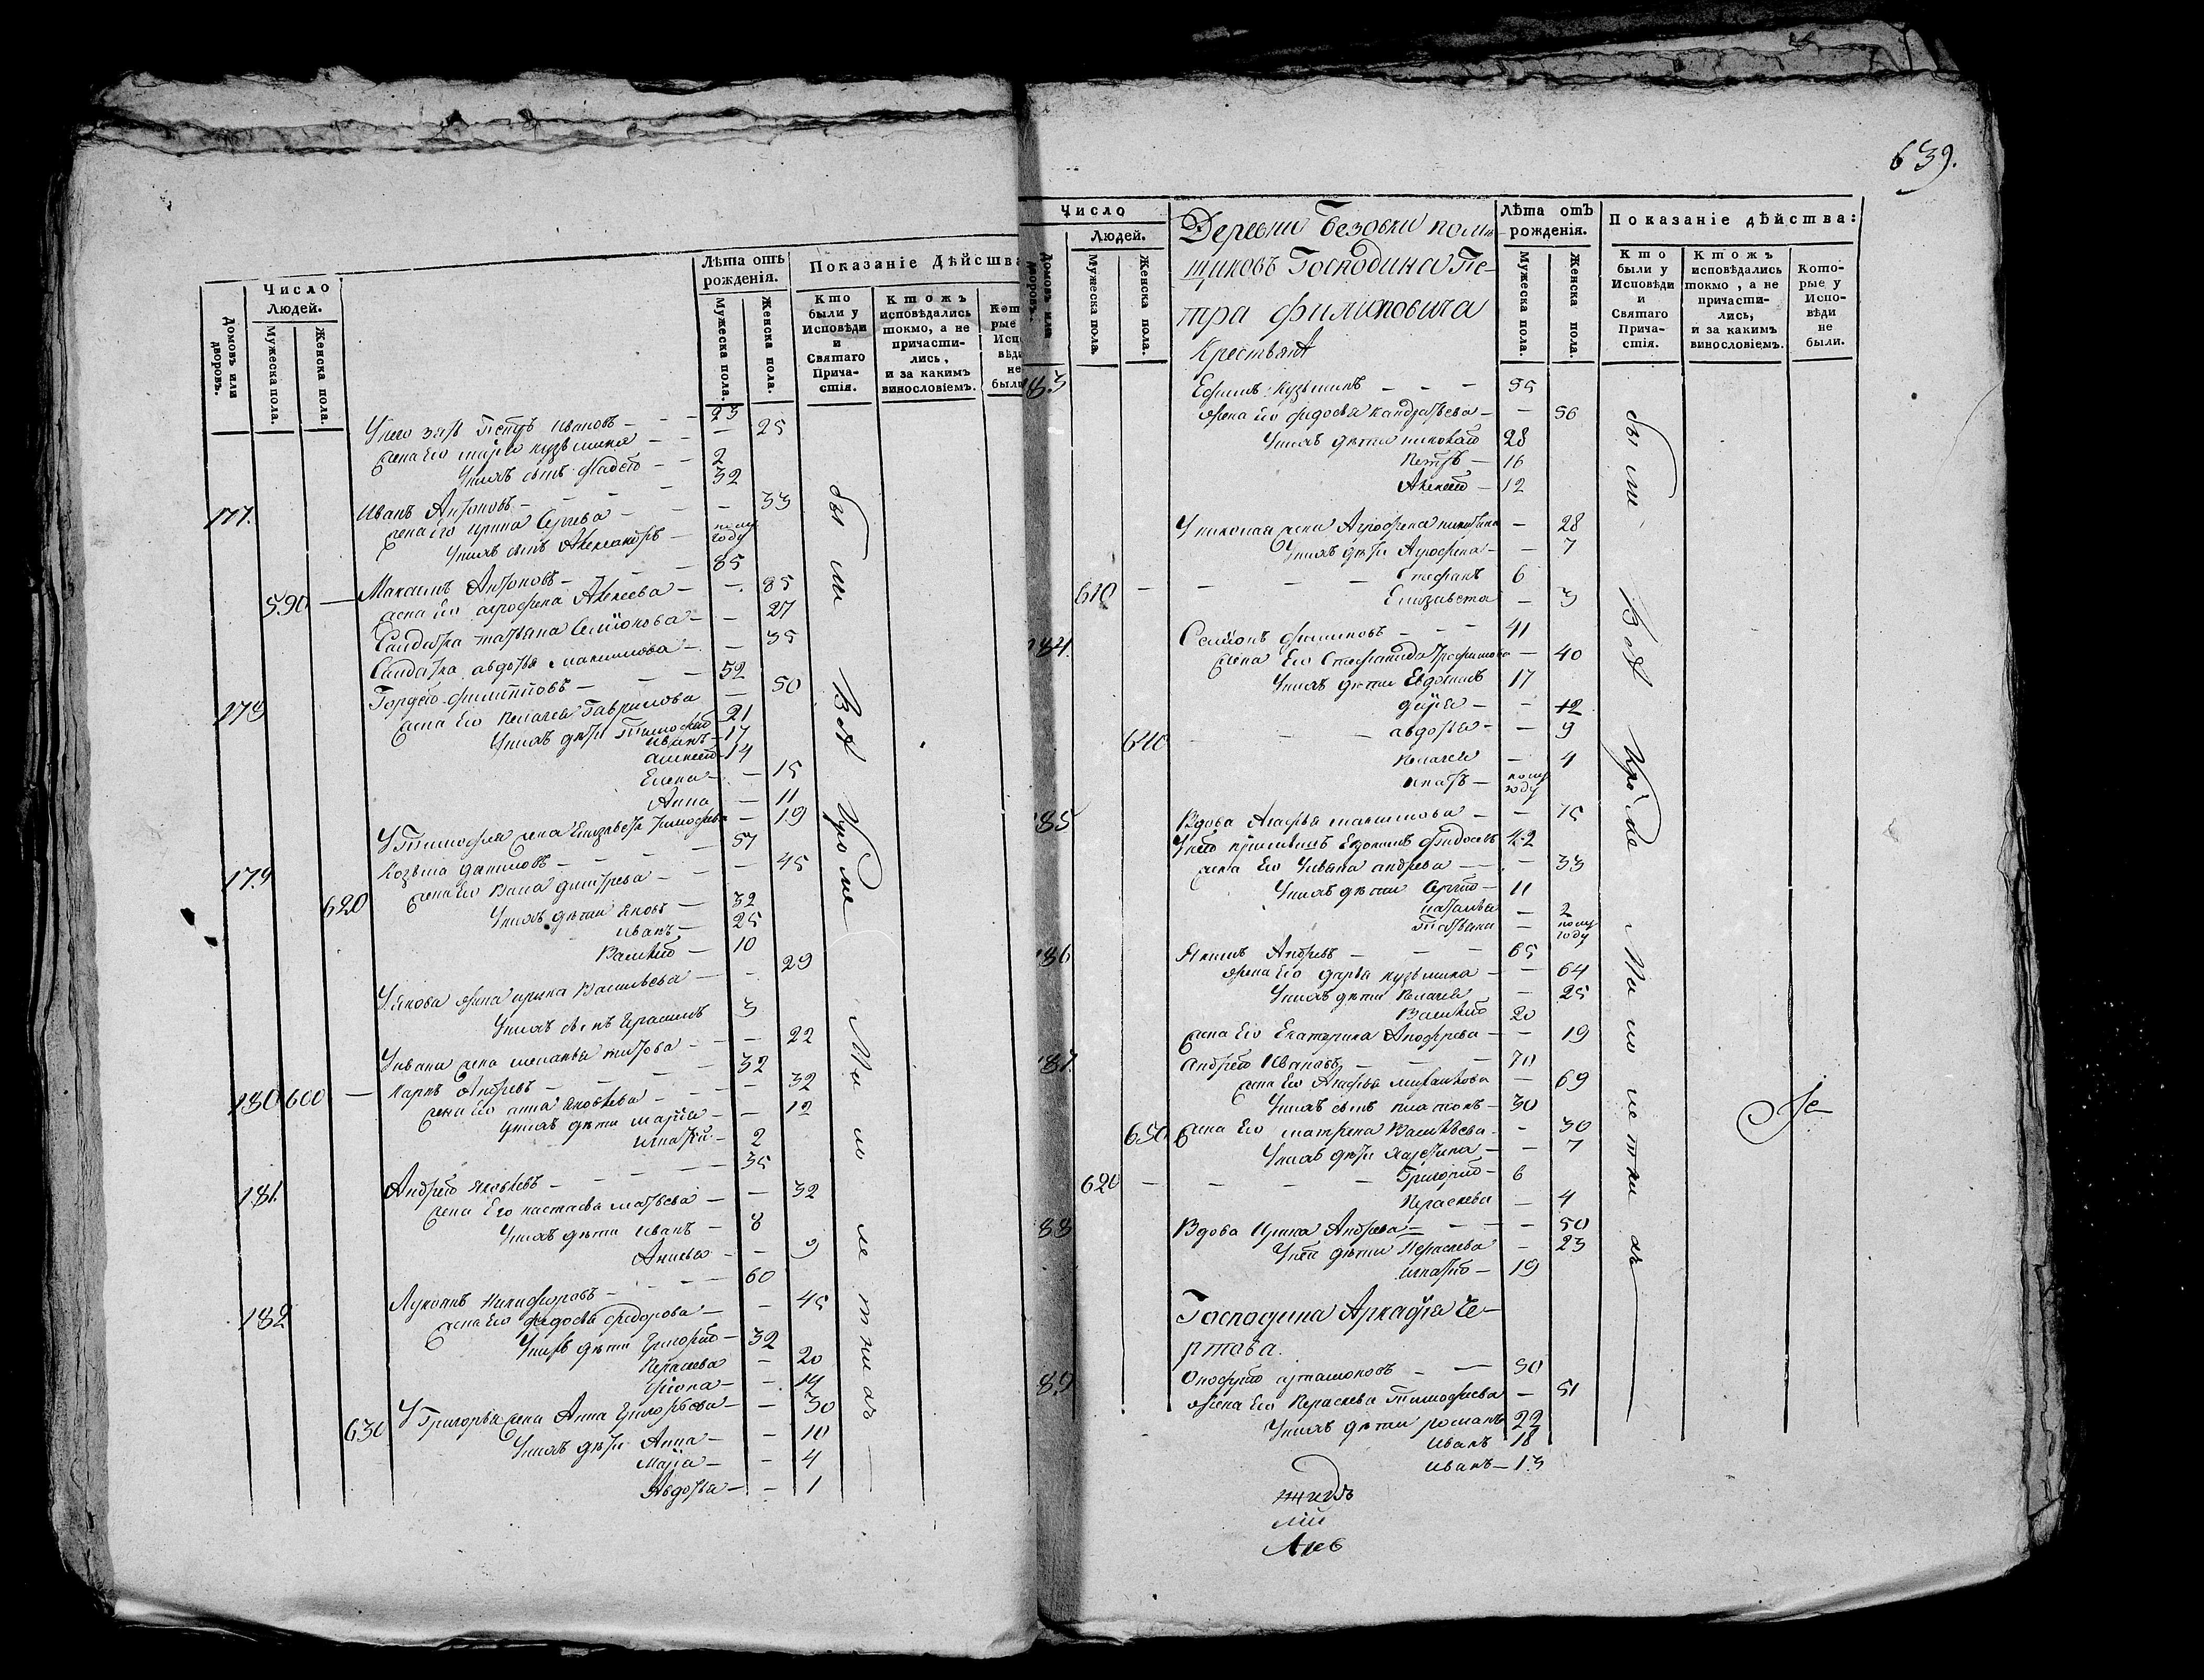 Число
Людей.
Домовъ или дворовъ.
Мужеска пола.
Женска пола.
Лѣта отъ рожденія.
Мужеска пола.
Женска пола.
Показаніе дѣйства
Кто были у Исповѣди и Святаго Причастія.
Ктожъ исповѣдались токмо, а не причастились, и за какимъ винословіемъ.
Кото
рые
Исп
вѣд
не
был
У него зять Петръ Ивановъ — 23
жена его марія кузьмина — 25
У нихъ сынъ Фадей — 2
177. Иванъ Антоновъ — 32
жена его ирина Сергѣева — 33
У нихъ сынъ Александръ — полу году
590 — Максимъ Антоновъ — 85
жена его агрофена Алексѣева — 85
Салдатка татьяна Семіонова — 27
Салдатка авдотья максимова — 35
178 Гордѣй филипповъ — 52
жена его Пелагея Гаврилова — 50
У нихъ дѣти Тимофей 21
иванъ — 17
алексей — 14
Елена — 15
Анна — 11
У Тимофея жена Елизавета тимофева — 19
179 Козьма даниловъ — 57
620 жена его Васса дмитрева — 45
У нихъ дѣти яковъ — 32
иванъ — 25
Василей — 10
У якова жена ирина Васильева — 29
У нихъ сынъ Герасимъ 3
У ивана жена меланья титова — 22
180 600 — Карпъ Андревъ — 32
жена его анна яковлева — 32
У нихъ дѣти марія — 12
игнатей — 2
181. Андрей яковлевъ — 35
жена Его настасья матвева — 32
У нихъ дѣти иванъ — 8
Аксинья — 9
182 Лукьянъ Никифоровъ — 60
жена его федосья федорова — 45
У нихъ дѣти Григорей — 32
Пераскева — 20
Фіона — 14
У Григорья жена Анна Григорьева — 30
630 У нихъ дѣти Анна — 10
Марія — 4
Авдотья — 1
были Всѣ Кроме Малолетнихъ
639.
Число
Людей.
Домовъ или дворовъ.
Мужеска пола.
Женска пола.
Деревни Безовки помѣ-
щиковъ Господина Пе-
тра Филиповича
Крестьянѣ
Лѣта отъ рожденія.
Мужеска пола.
Женска пола.
Показаніе дѣйства:
Кто были у Исповѣди и Святаго Причастія.
Ктожъ исповѣдались токмо, а не причастились, и за какимъ винословіемъ.
Которые у Исповѣди не были.
83 Ефимъ Кузьминъ — 55
жена его федосья кандратьева — 56
У нихъ дѣти николай 28
Петръ — 16
Алексей — 12
У николая жена Агрофена никитина — 28
У нихъ дѣти Агрофена — 7
Стефанъ 6
610 — Елизавета — 3
184. Семіонъ филиповъ — 41
жена Его Стефанида трофимова — 40
У нихъ дѣти Евдокимъ 17
дарія — 12
640 авдотья — 9
Пелагея — 4
игнатъ — полу году
85 Вдова Агафья максимова — 75
У ней приимышъ Евдокимъ федосевъ 42
жена Его Ульяна андрева — 33
У нихъ дѣти Сергей — 11
наталья — 2
Татьяна — полу году
86 Якимъ Андревъ — 65
жена его дарья кузьмина — 64
У нихъ дѣти Пелагея — 25
Василей 20
жена Его Екатерина Анофрева — 19
87 Андрей Ивановъ — 70
жена Его Агафья михайлова — 69
У нихъ сынъ платонъ — 30
650 жена Его матрена Васильева — 30
У нихъ дѣти харетина — 7
620 — Григорей — 6
Пераскева — 4
88 Вдова Ирина Андрева — 50
У ней дѣти Пераскева — 23
игнатей — 19
Господина Аркадія Че-
ртова.
89 Онофрей артамоновъ — 50
жена Его Пераскева Тимофеева — 51
У нихъ дѣти романъ 22
Иванъ 18
иванъ — 13
были Всѣ Кроме Малолетнихъ